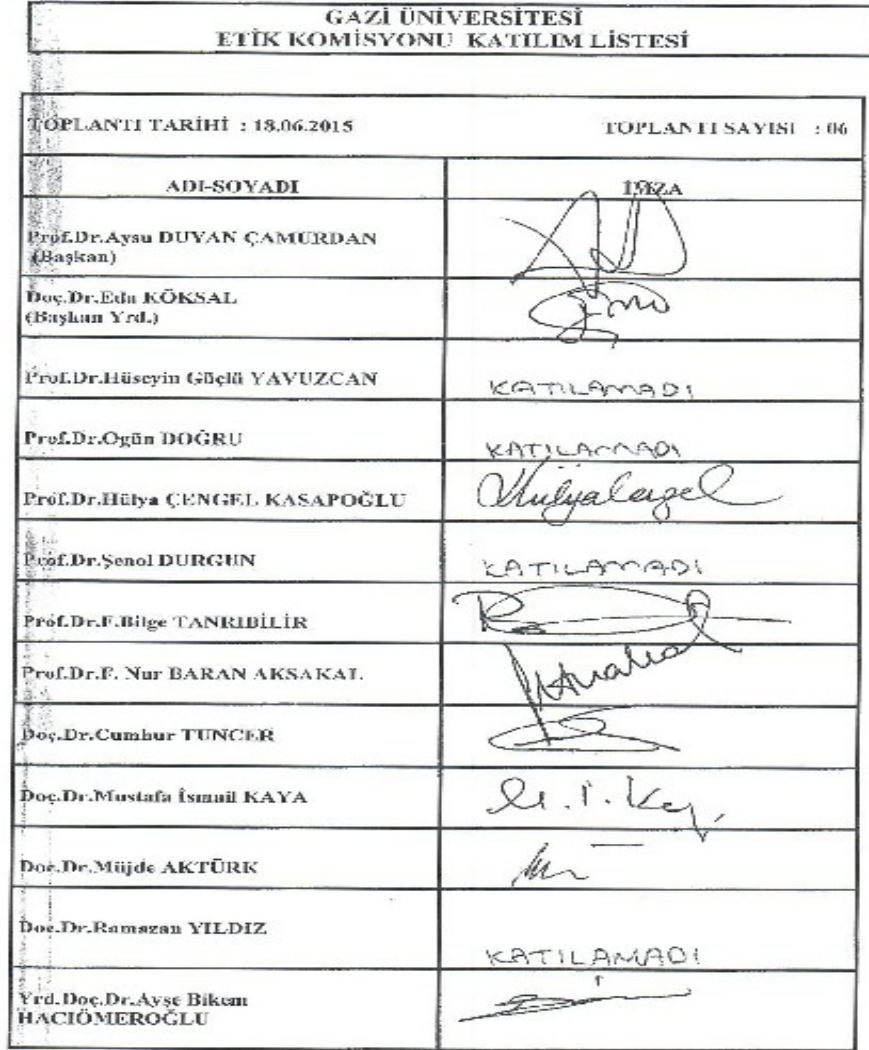 GAZİ ÜNİVERSİTESİ
ETİK KOMİSYONU KATILIM LİSTESİ
TOPLANTI TARİHİ : 18.06.2015 TOPLANTI SAYISI : 06
ADI-SOYADI İMZA
Prof.Dr.Aysu DUYAN ÇAMURDAN
(Başkan)
Doç.Dr.Eda KÖKSAL
(Başkan Yrd.)
Prof.Dr.Hüseyin Güçlü YAVUZCAN KATILAMADI
Prof.Dr.Ogün DOĞRU KATILAMADI
Prof.Dr.Hülya ÇENGEL KASAPOĞLU
Prof.Dr.Şenol DURGUN KATILAMADI
Prof.Dr.F.Bilge TANRIBİLİR
Prof.Dr.F. Nur BARAN AKSAKAL
Doç.Dr.Cumhur TUNCER
Doç.Dr.Mustafa İsmail KAYA
Doç.Dr.Müjde AKTÜRK
Doç.Dr.Ramazan YILDIZ KATILAMADI
Yrd.Doç.Dr.Ayşe Bikem
HACIÖMEROĞLU